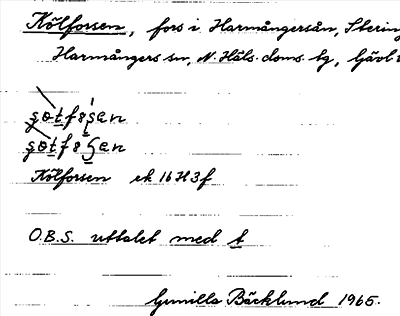 Kölforsen, fors i Harmångersån, String
Harmångers sn, N. Häls. doms. tg, Gävl
Kölforsen ek 16 H 3 f
O.B.S. uttalet med t
Gunilla Bäcklund 1965.